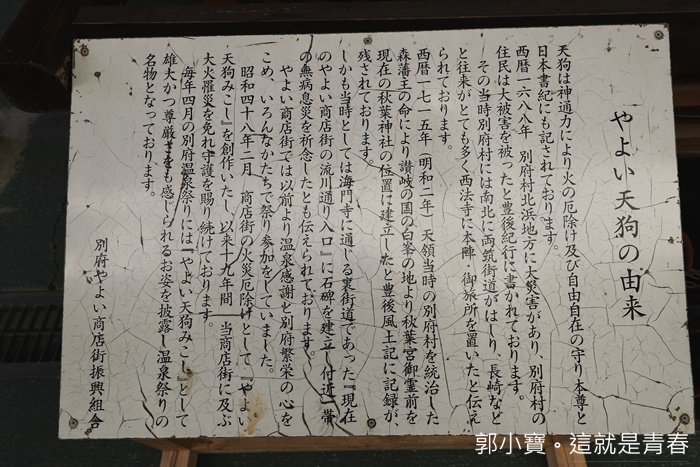 やよい天狗の由来
天狗は神通力により火の厄除け及び自由自在の守り本尊と
日本書紀にも記されております。
西暦一六八八年 別府村北浜地方に大災害があり、別府村の
住民は大被害を被ったと豊後紀行に書かれております。
その当時別府村には南北に両筑街道がはしり、長崎など
と往来がとても多く西法寺に本陣 御旅所を置いたと伝え
られております。
西暦一七一五年(明和二年)天領当時の別府村を統治した
森藩主の命により讃岐の国の白峯の地より秋葉宮御霊前を
現在の秋葉神社の位置に建立したと豊後風土記に記録が、
残されております。
しかも当時としては海門寺に通じる裏街道であった『現在
のやよい商店街の流川通り入口』に石碑を建立し付近一帯
の無病息災を祈念したとも伝えられております。
やよい商店街では以前より温泉感謝と別府繁栄の心を
こめ、いろんなかたちで祭り参加をしていました。
昭和四十八年二月 商店街の火災厄除けとして、『やよい
天狗みこし』を創作いたし、以来十九年間 当商店街に及ぶ
大火罹災を免れ守護を賜り続けております。
毎年四月の別府温泉祭りには『やよい天狗みこし』として
雄大かつ尊厳さをも感じられるお姿を披露し温泉祭りの
名物となっております。
別府やよい商店街振興組合
郭小寶。這就是青春